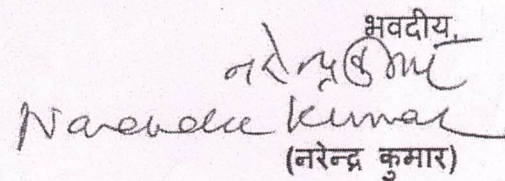 भवदीय,
नरेन्द्र कुमार
Narendra Kumar
(नरेन्द्र कुमार)